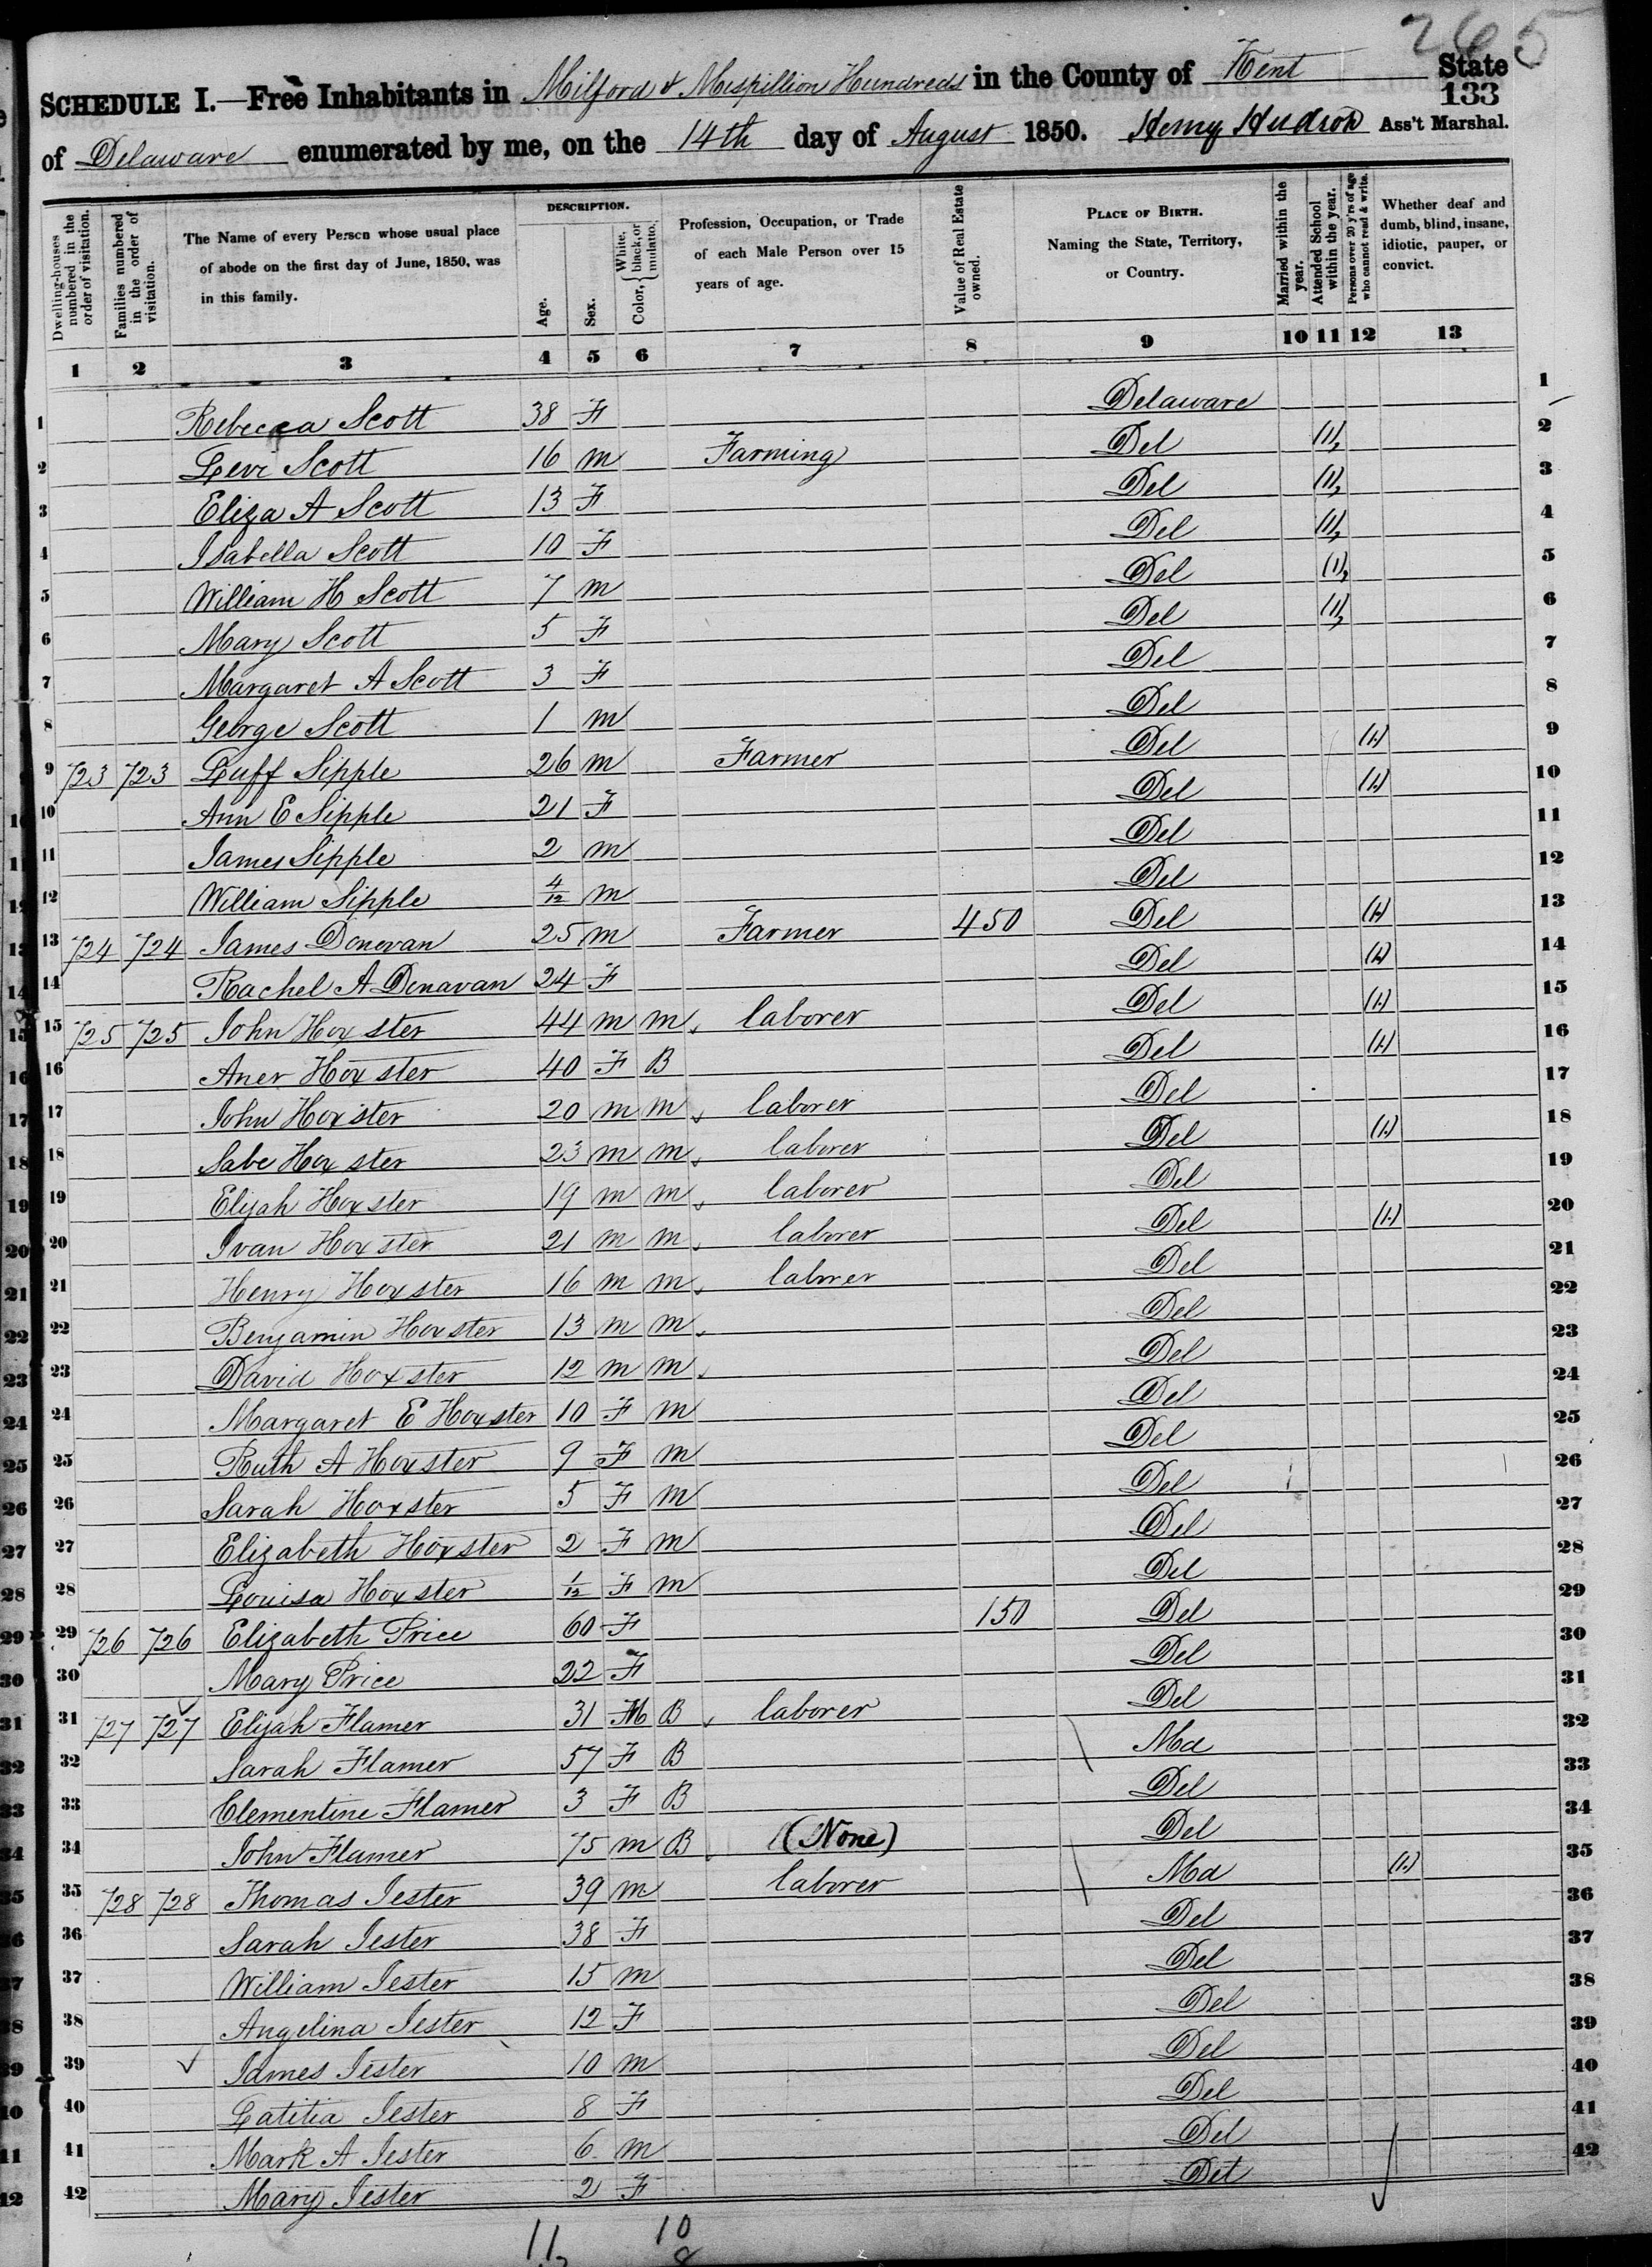 265
SCHEDULE I.—Free Inhabitants in Milford & Mispillion Hundreds in the County of Kent State
133
of Delaware enumerated by me, on the 14th day of August 1850. Henry Hudson Ass't Marshal.
Dwelling-houses numbered in the order of visitation.
Families numbered in the order of visitation.
The Name of every Person whose usual place of abode on the first day of June, 1850, was in this family.
DESCRIPTION.
Age.
Sex.
Color, { White, black, or mulatto.
Profession, Occupation, or Trade of each Male Person over 15 years of age.
Value of Real Estate owned.
PLACE OF BIRTH. Naming the State, Territory, or Country.
Married within the year.
Attended School within the year.
Persons over 20 y'rs of age who cannot read & write.
Whether deaf and dumb, blind, insane, idiotic, pauper, or convict.
1 2 3 4 5 6 7 8 9 10 11 12 13
1 Rebecca Scott 38 F Delaware 1
2 Levi Scott 16 m Farming Del (1), 2
3 Eliza A Scott 13 F Del (1), 3
4 Isabella Scott 10 F Del (1), 4
5 William H Scott 7 m Del (1), 5
6 Mary Scott 5 F Del (1), 6
7 Margaret A Scott 3 F Del 7
8 George Scott 1 m Del 8
9 723 723 Luff Sipple 26 m Farmer Del (1.) 9
10 Ann E Sipple 21 F Del (1.) 10
11 James Sipple 2 m Del 11
12 William Sipple 4/12 m Del 12
13 724 724 James Donovan 25 m Farmer 450 Del (1.) 13
14 Rachel A Donavan 24 F Del (1.) 14
15 725 725 John Hoxster 44 m m laborer Del (1.) 15
16 Aner Hoxster 40 F B Del (1.) 16
17 John Hoxster 20 m m laborer Del 17
18 Sabe Hoxster 23 m m laborer Del (1.) 18
19 Elijah Hoxster 19 m m laborer Del 19
20 Ivan Hoxster 21 m m laborer Del (1.) 20
21 Henry Hoxster 16 m m laborer Del 21
22 Benjamin Hoxster 13 m m Del 22
23 David Hoxster 12 m m Del 23
24 Margaret E Hoxster 10 F m Del 24
25 Ruth A Hoxster 9 F m Del 25
26 Sarah Hoxster 5 F m Del 26
27 Elizabeth Hoxster 2 F m Del 27
28 Louisa Hoxster 1/12 F m Del 28
29 726 726 Elizabeth Price 60 F 150 Del 29
30 Mary Price 22 F Del 30
31 727 727 Elijah Flamer 31 M B laborer Del 31
32 Sarah Flamer 57 F B Md 32
33 Clementine Flamer 3 F B Del 33
34 John Flamer 75 m B (None) Del 34
35 728 728 Thomas Jester 39 m laborer Md (1.) 35
36 Sarah Jester 38 F Del 36
37 William Jester 15 m Del 37
38 Angelina Jester 12 F Del 38
39 James Jester 10 m Del 39
40 Latitia Jester 8 F Del 40
41 Mark A Jester 6 m Del 41
42 Mary Jester 2 F Del 42
11 10